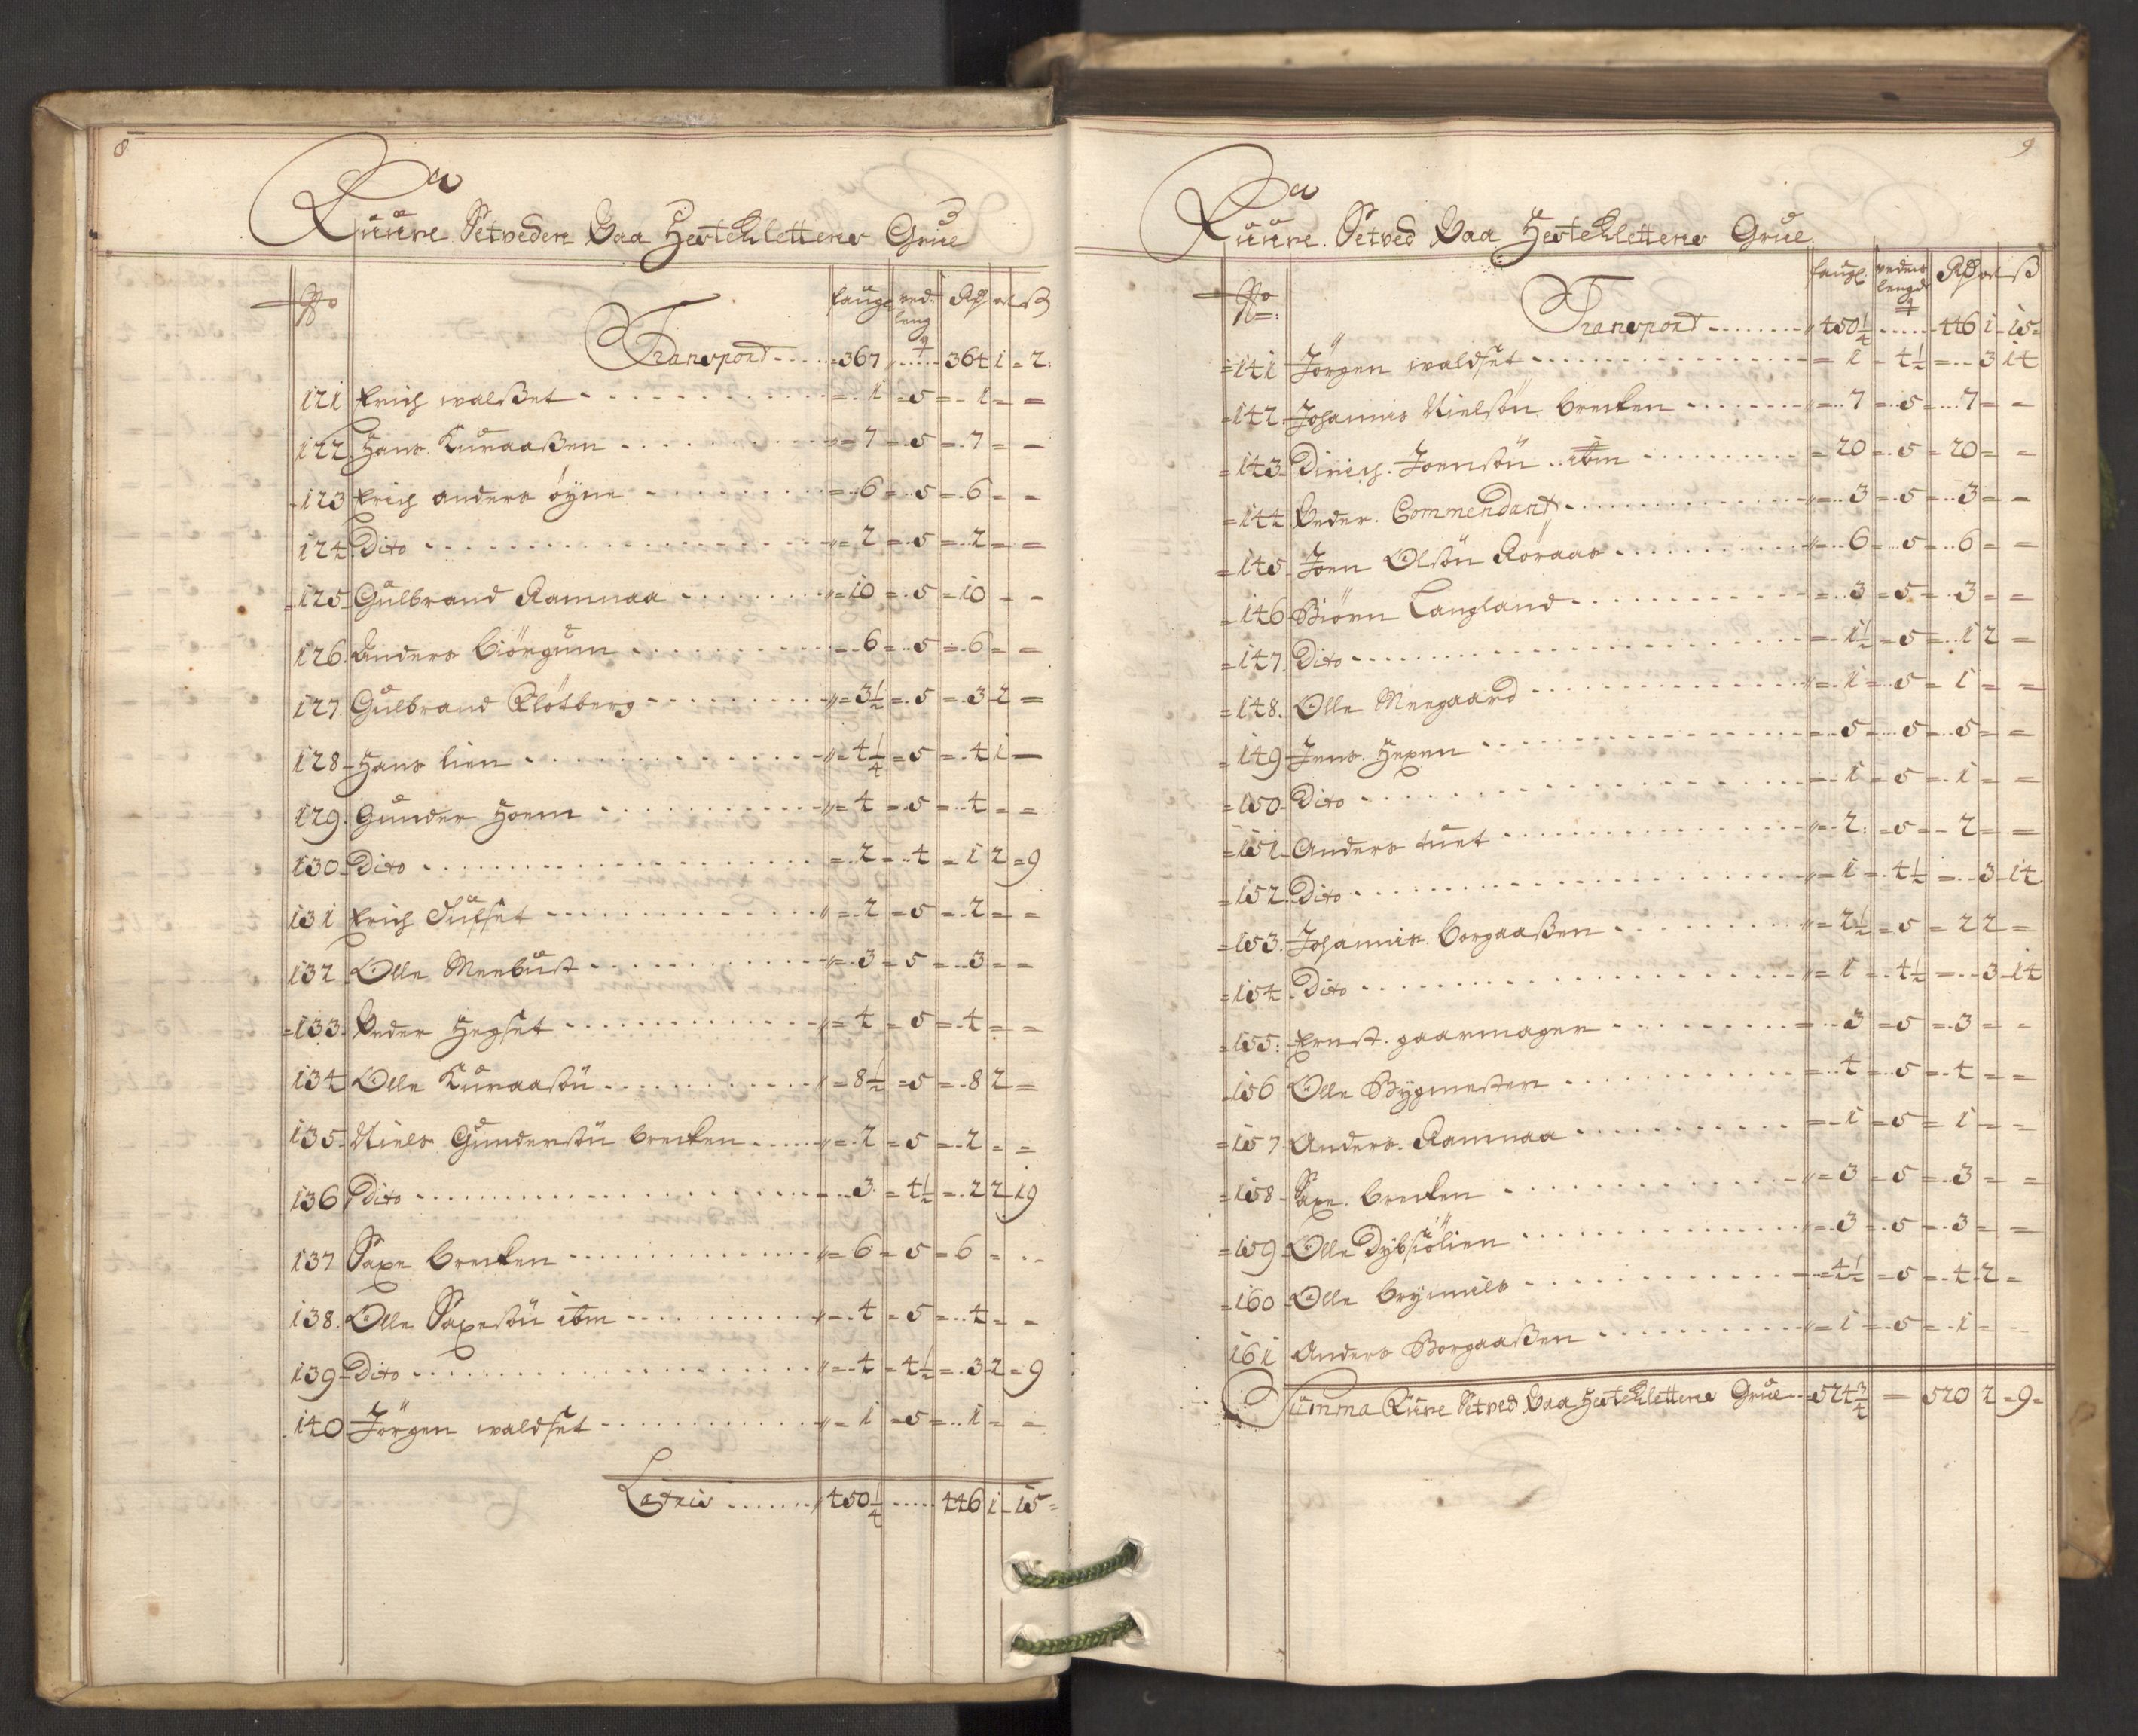 8
Paa
Ruure Setveden Paa Hestekletters Grue
No
faugl ved. leng Rdr ort ß
4
Transport = 367 364 1 = 2
121 Erich walßet = 1 = 5 = 1 = =
122 Hans Kuraaßen = 7 = 5 = 7 = =
123 Erich anders öyne = 6 = 5 = 6 = =
124 Dito = 2 = 5 = 2 = =
125 Gulbrand Ramnaa = 10 = 5 = 10 = =
126 Anders biörgum = 6 = 5 = 6 = =
127 Gulbrand Klötberg = 3½ = 5 = 3 2 =
128 Hans lien = 4¼ = 5 = 4 1 =
129 Gunder Hoem = 4 = 5 = 4 = =
130 Dito = 2 = 4 = 1 2 = 9
131 Erich = 2 = 5 = 2 = =
132 Olle Meebust = 3 = 5 = 3 = =
133 Peder Hegset = 4 = 5 = 4 = =
134 Olle Kuraasön = 8½ = 5 = 8 2 =
135 Niels Gundersön brecken = 2 = 5 = 2 = =
136 Dito = 3 = 4½ = 2 2 19
137 Saxe brecken = 6 = 5 = 6 = =
138 Olle Saxesön ibm = 4 = 5 = 4 = =
139 Dito = 4 = 4½ = 3 2 = 9
140 Jörgen waldset = 1 = 5 = 1 = =
Latris 450¼ 446 1 15 =
9
Paa
Ruure Setved Paa Hestekletters Grue
No
faugl vedens lengde Rdr ort ß
4
Transport 450¼ 446 1 15 =
141 Jörgen waldset = 1 = 4½ = 3 14
142 Johannis Nielsön brecken = 7 = 5 = 7 = =
143 Dirich Joensön ibm = 20 = 5 = 20 = =
144 Peder Commendant = 3 = 5 = 3 = =
145 Joen Olsön Röraas = 6 = 5 = 6 = =
146 Biörn Langland = 3 = 5 = 3 = =
147 Dito = 1½ = 5 = 1 2 =
148 Olle Meegaard = 1 = 5 = 1 = =
149 Jens Hexem = 5 = 5 = 5 = =
150 Dito = 1 = 5 = 1 = =
151 Anders tuet = 2 = 5 = 2 = =
152 Dito = 1 = 4½ = 3 14
153 Johannis borgaaßen = 2½ = 5 = 2 2 =
154 Dito = 1 = 4½ = 3 14
155 Ernst gaarmager = 3 = 5 = 3 = =
156 Olle Bygmester = 4 = 5 = 4 = =
157 Anders Ramnaa = 1 = 5 = 1 = =
158 Saxe brecken = 3 = 5 = 3 = =
159 Olle Dybsiölien = 3 = 5 = 3 = =
160 Olle brynnils = 4½ = 5 = 4 2 =
161 Anders Borgaaßen = 1 = 5 = 1 = =
Summa Ruure Setved Paa Hestekletters Grue 524¾ = 520 2 = 9 =